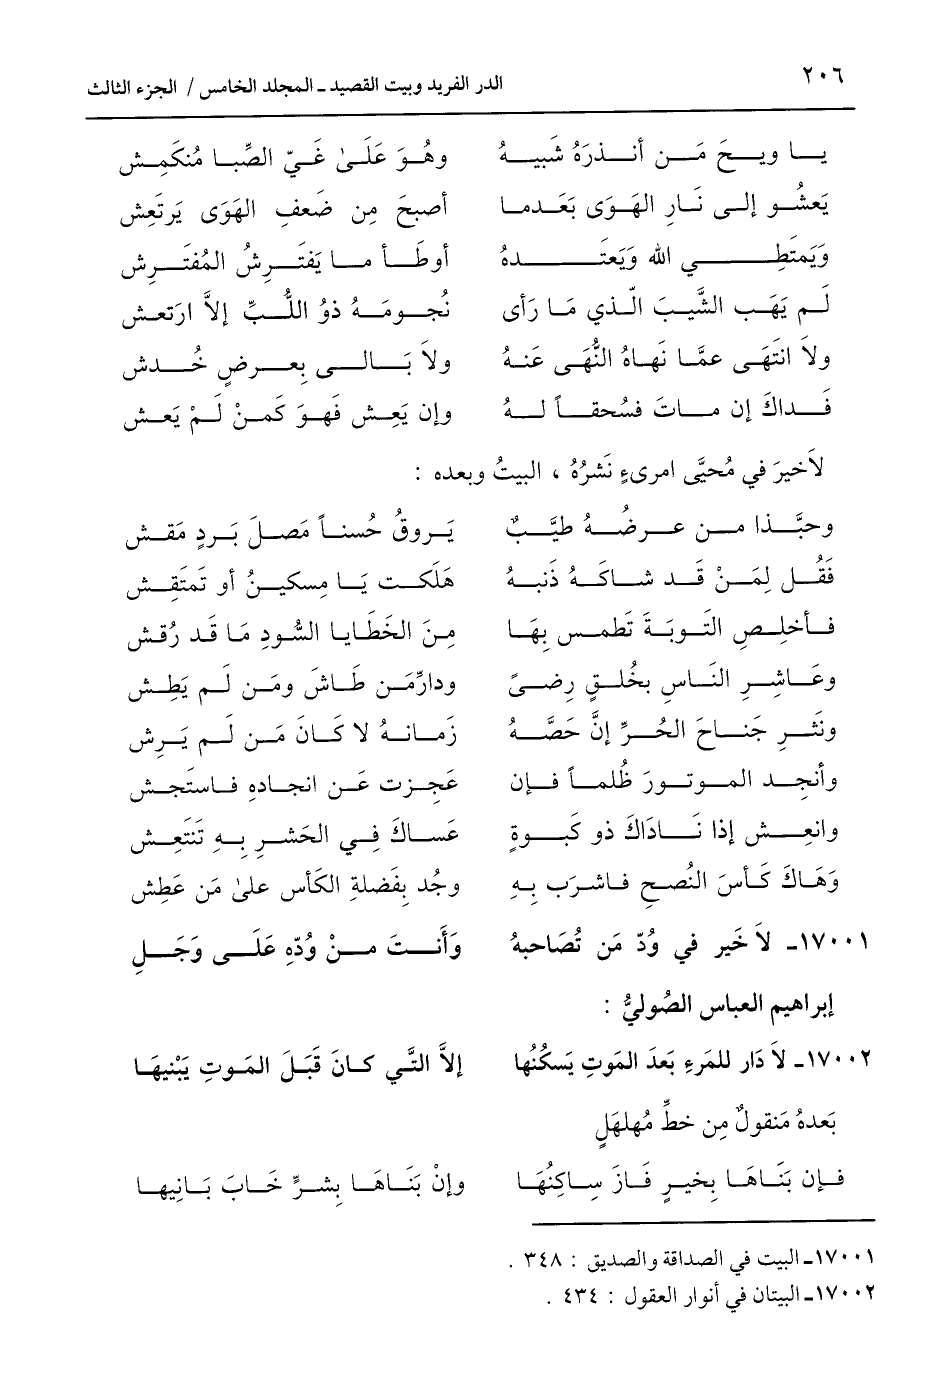 ٢٠٦ الدر الفريد وبيت القصيد ـ المجلد الخامس / الجزء الثالث
يا ويح من أنذره شيبه وهو على غيّ الصِّبا منكمش
يعشو إلى نار الهوى بعدما أصبح من ضعف الهوى يرتعش
ويمتطي الله ويعتده أوطأ ما يفترش المفترش
لم يهب الشّيب الذي ما رأى نجومه ذو اللبّ إلاّ ارتعش
ولا انتهى عمّا نهاه النُّهى عنه ولا بالى بعرض خُدش
فداك إن مات فسُحقاً له وإن يعش فهو كمن لم يعش
لاخير في محيَّى امرىءٍ نشرُهُ ، البيتُ وبعده :
وحبَّذا من عرضه طيّبٌ يروق حسناً مصل برد مقش
فقل لمن قد شاكه ذنبه هلكت يا مسكين أو تمتقش
فأخلص التوبة تطمس بها من الخطايا السُّود ما قد رُقش
وعاشر الناس بخلق رضىً ودار من طاش ومن لم يطش
ونثر جناح الحرّ إن حصَّه زمانه لا كان من لم يرش
وأنجد الموتور ظلماً فإن عجزت عن انجاده فاستجش
وانعش إذا ناداك ذو كبوةٍ عساك في الحشر به تنتعش
وهاك كأس النُصح فاشرب به وجُد بفضلة الكأس على من عطش
١٧٠٠١ـ لا خير في ودّ من تُصاحبهُ وأنت من ودّه على وجلِ
إبراهيم العباس الصُوليُّ :
١٧٠٠٢ـ لا دار للمرءِ بعد الموتِ يسكُنُها إلاَّ التّي كان قبل الموتِ يبْنيها
بعده منقولٌ من خطّ مُهلهلٍ
فإن بناها بخيرٍ فاز ساكنُها وإنْ بناها بشرٍّ خاب بانيها
١٧٠٠١ـ البيت في الصداقة والصديق : ٣٤٨ .
١٧٠٠٢ـ البيتان في أنوار العقول : ٤٣٤ .